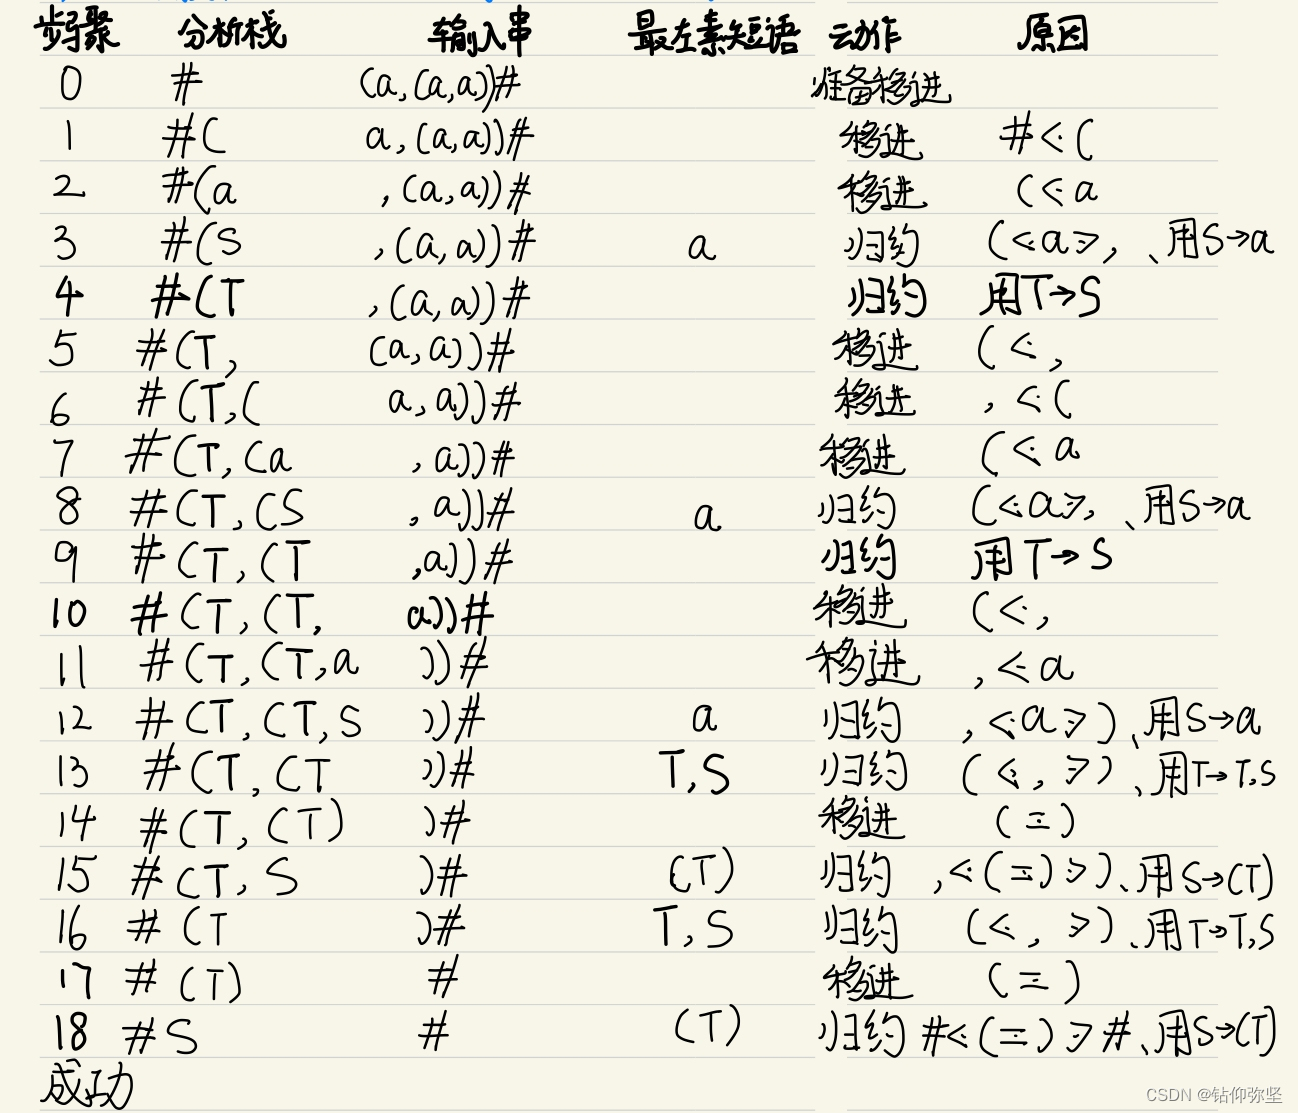 步骤 分析栈 输入串 最左素短语 动作 原因
0 # (a,(a,a))# 准备移进
1 #( a,(a,a))# 移进 #⋖(
2 #(a ,(a,a))# 移进 (⋖a
3 #(S ,(a,a))# a 归约 (⋖a⋗,、用S→a
4 #(T ,(a,a))# 归约 用T→S
5 #(T, (a,a))# 移进 (⋖,
6 #(T,( a,a))# 移进 ,⋖(
7 #(T,(a ,a))# 移进 (⋖a
8 #(T,(S ,a))# a 归约 (⋖a⋗,、用S→a
9 #(T,(T ,a))# 归约 用T→S
10 #(T,(T, a))# 移进 (⋖,
11 #(T,(T,a ))# 移进 ,⋖a
12 #(T,(T,S ))# a 归约 ,⋖a⋗)、用S→a
13 #(T,(T ))# T,S 归约 (⋖,⋗)、用T→T,S
14 #(T,(T) )# 移进 (≡)
15 #(T,S )# (T) 归约 ,⋖(≡)⋗)、用S→(T)
16 #(T )# T,S 归约 (⋖,⋗)、用T→T,S
17 #(T) # 移进 (≡)
18 #S # (T) 归约 #⋖(≡)⋗#、用S→(T)
成功
CSDN @钻仰弥坚